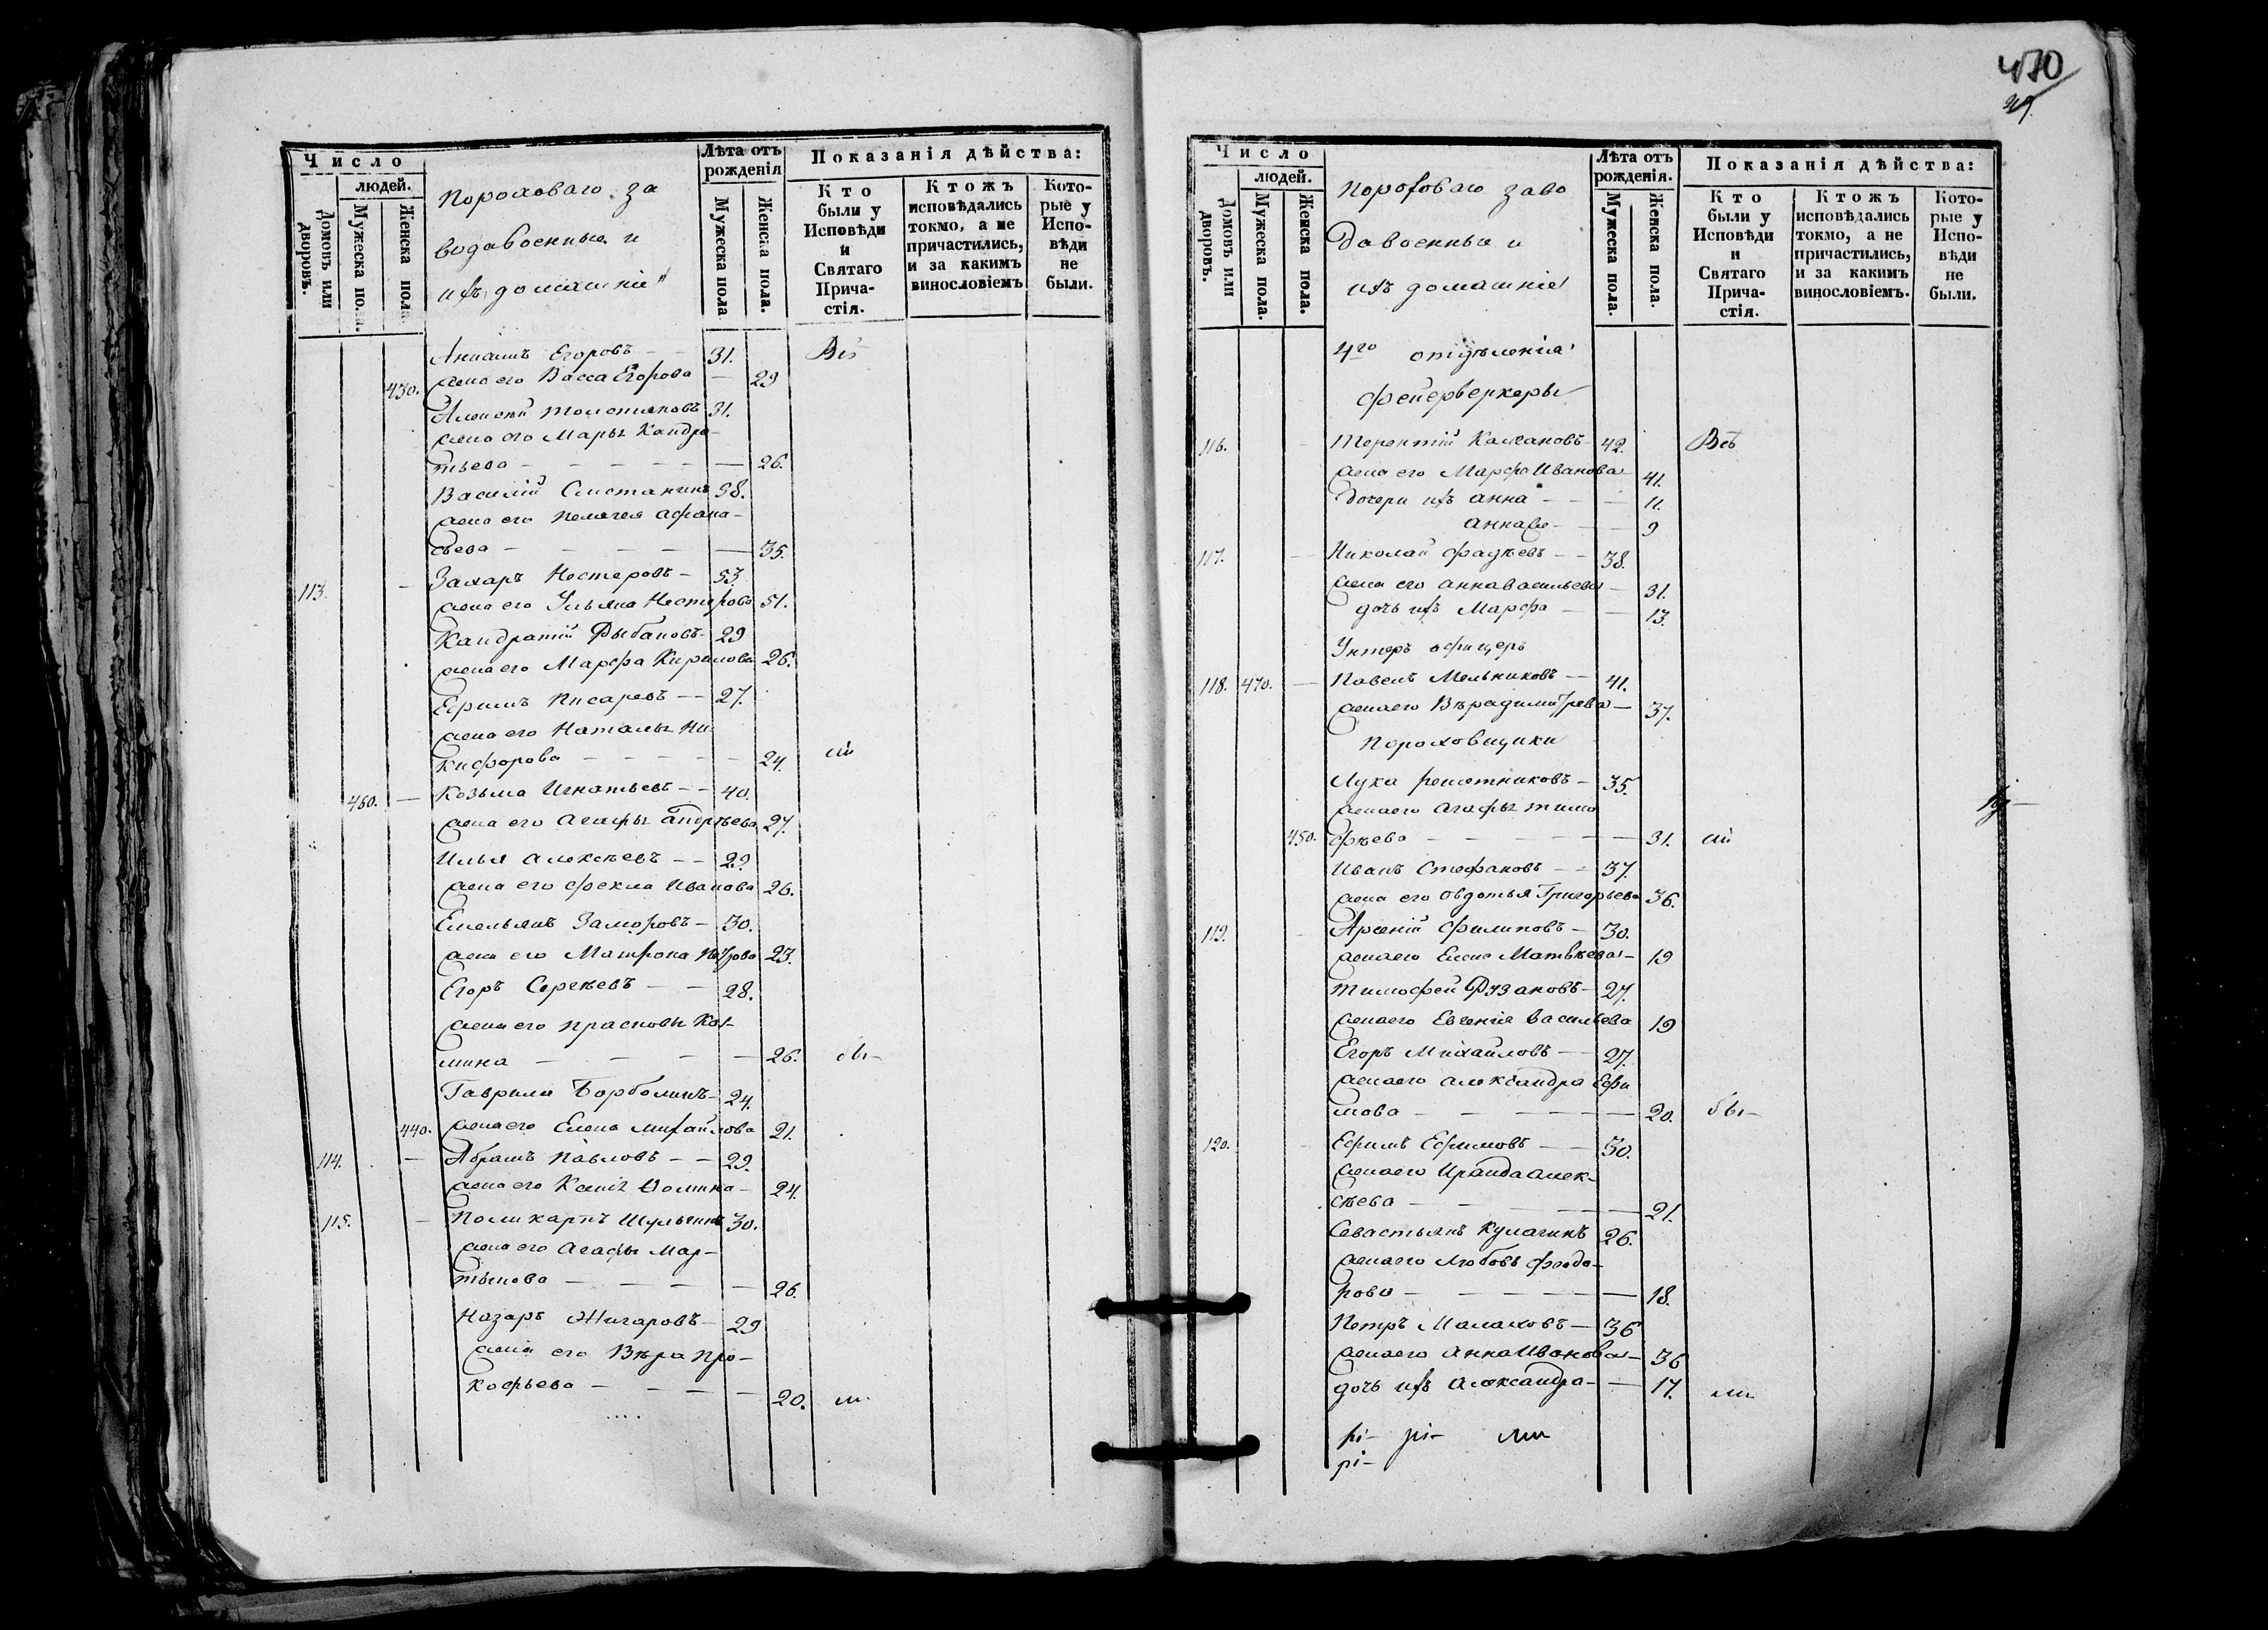 470
29
Число
людей.
Домовъ или дворовъ.
Мужеска пола.
Женска пола.
Пороховаго за
вода военные и
ихъ домашніе
Лѣта отъ рожденія
Мужеска пола
Женска пола.
Показанія дѣйства:
Кто были у Исповѣди и Святаго Прича- стія.
Ктожъ исповѣдались токмо, а не причастились, и за какимъ винословіемъ
Кото- рые у Испо- вѣди не были.
Егоровъ — 31. Всѣ
430. жена его Васса Егорова — 29
Алексѣй Толстяковъ 31.
жена его Марья Кандра-
тьева — — — — — 26.
Василій Сметанинъ 58.
жена его Пелагея Афана-
сьева — — — — — 35.
113. — Захаръ Нестеровъ — 53.
жена его Ульяна Нестерова 51.
Кандратій Рыбаковъ — 29
жена его Марфа Кирилова 26.
Ефимъ Писаревъ — — 27.
жена его Наталья Ни-
кифорова — — — — — 24.
460. — Козьма Игнатьевъ — — 40.
жена его Агафья Андрѣева 27.
Илья Алексѣевъ — — 29.
жена его Фекла Иванова 26.
Емельянъ Заморовъ — 30.
жена его Матрона Петрова 23.
Егоръ Сергѣевъ — — 28.
жена его Прасковья Коз-
мина — — — — 26.
Гаврила — 24.
440. жена его Елена Михайлова 21.
114. — Абрамъ Павловъ — — 29.
жена его — 24.
115. — Поликарпъ Шульгинъ 30.
жена его Агафья Мар-
тынова — — — — 26.
Назаръ Жигаровъ — 29
жена его Вѣра Про-
кофьева — — — — 20.
Число
людей.
Домовъ или дворовъ.
Мужеска пола.
Женска пола.
Пороховаго заво
да военные и
ихъ домашніе
Лѣта отъ рожденія.
Мужеска пола.
Женска пола.
Показанія дѣйства:
Кто были у Исповѣди и Святаго Прича- стія.
Ктожъ исповѣдались токмо, а не причастились, и за какимъ винословіемъ.
Кото- рые у Испо- вѣди не были.
4го отдѣленія
фейерверкеры
116. — Терентій 42. Всѣ
жена его Марфа Иванова 41.
дочери ихъ Анна — — — 11.
9
117. — Николай Фадѣевъ — — 38.
жена его Анна Васильева — 31.
дочь ихъ Марфа — — 13.
Унтеръ офицеръ
118. 470. — Павелъ Мельниковъ — — 41.
жена его Вѣра — 37.
Пороховщики
Лука Решетниковъ — 35.
жена его Агафья Тимо
450. фѣева — — — — — 31.
Иванъ Стефановъ — — 37.
жена его Овдотья Григорьева 36.
119. — Арсеній Филиповъ — 30.
жена его Елена Матвѣева — 19
Тимофей Рузановъ — 27.
жена его Евгенія Васильева 19
Егоръ Михайловъ — — 27.
жена его Александра Ефи
мова — — — — — 20.
120. — Ефимъ Ефимовъ — — 30.
жена его Ираида Алек-
сѣева — — — 21.
Севастьянъ Кулагинъ 26.
жена его Любовь Феодо-
рова — — — — — 18.
Петръ Малаховъ — 36
жена его Анна Иванова — 36
дочь ихъ Александра — — 17.